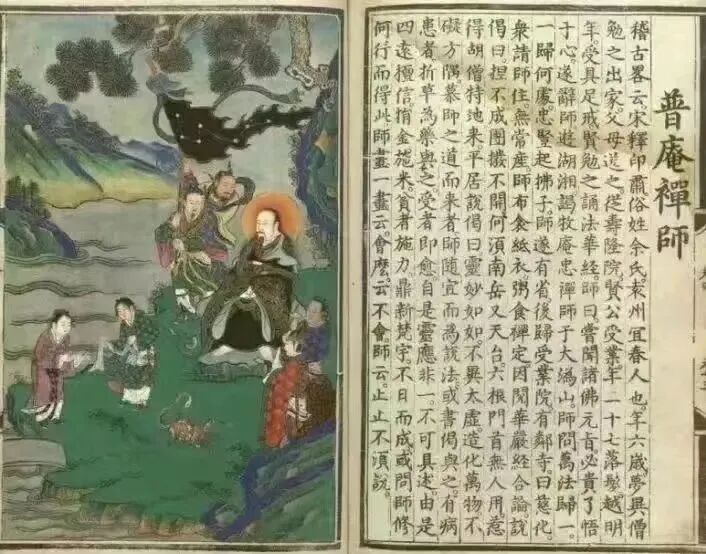 普庵禪師
稽古畧云宋釋印肅俗姓余氏袁州宜春人也年六歲夢異僧
勉之出家父母送之從壽隆院賢公受業年二十七落髮越明
年受具足戒賢勉之誦法華經師曰嘗聞諸佛元旨必貴了悟
于心遂辭師遊湖湘謁牧庵忠禪師于大溈山師問萬法歸一
一歸何處忠豎起拂子師遂有省後歸受業院有鄰寺曰慈化
衆請師住無常産師布衾紙衣粥食禪定因閱華嚴經合論說
偈曰捏不成團撥不開何須南岳又天台六根門首無人用惹
得胡僧特地来平居說偈曰靈妙如如不異太虛造化萬物不
礙方隅慕師之道而来者師隨宜而為說法或書偈與之有病
患者折草為藥與之受者即愈自是靈應非一不可具述由是
四遠檀信捐金施米貧者施力鼎新梵宇不日而成或問師修
何行而得此師畫一畫云會麽云不會師云止止不須說